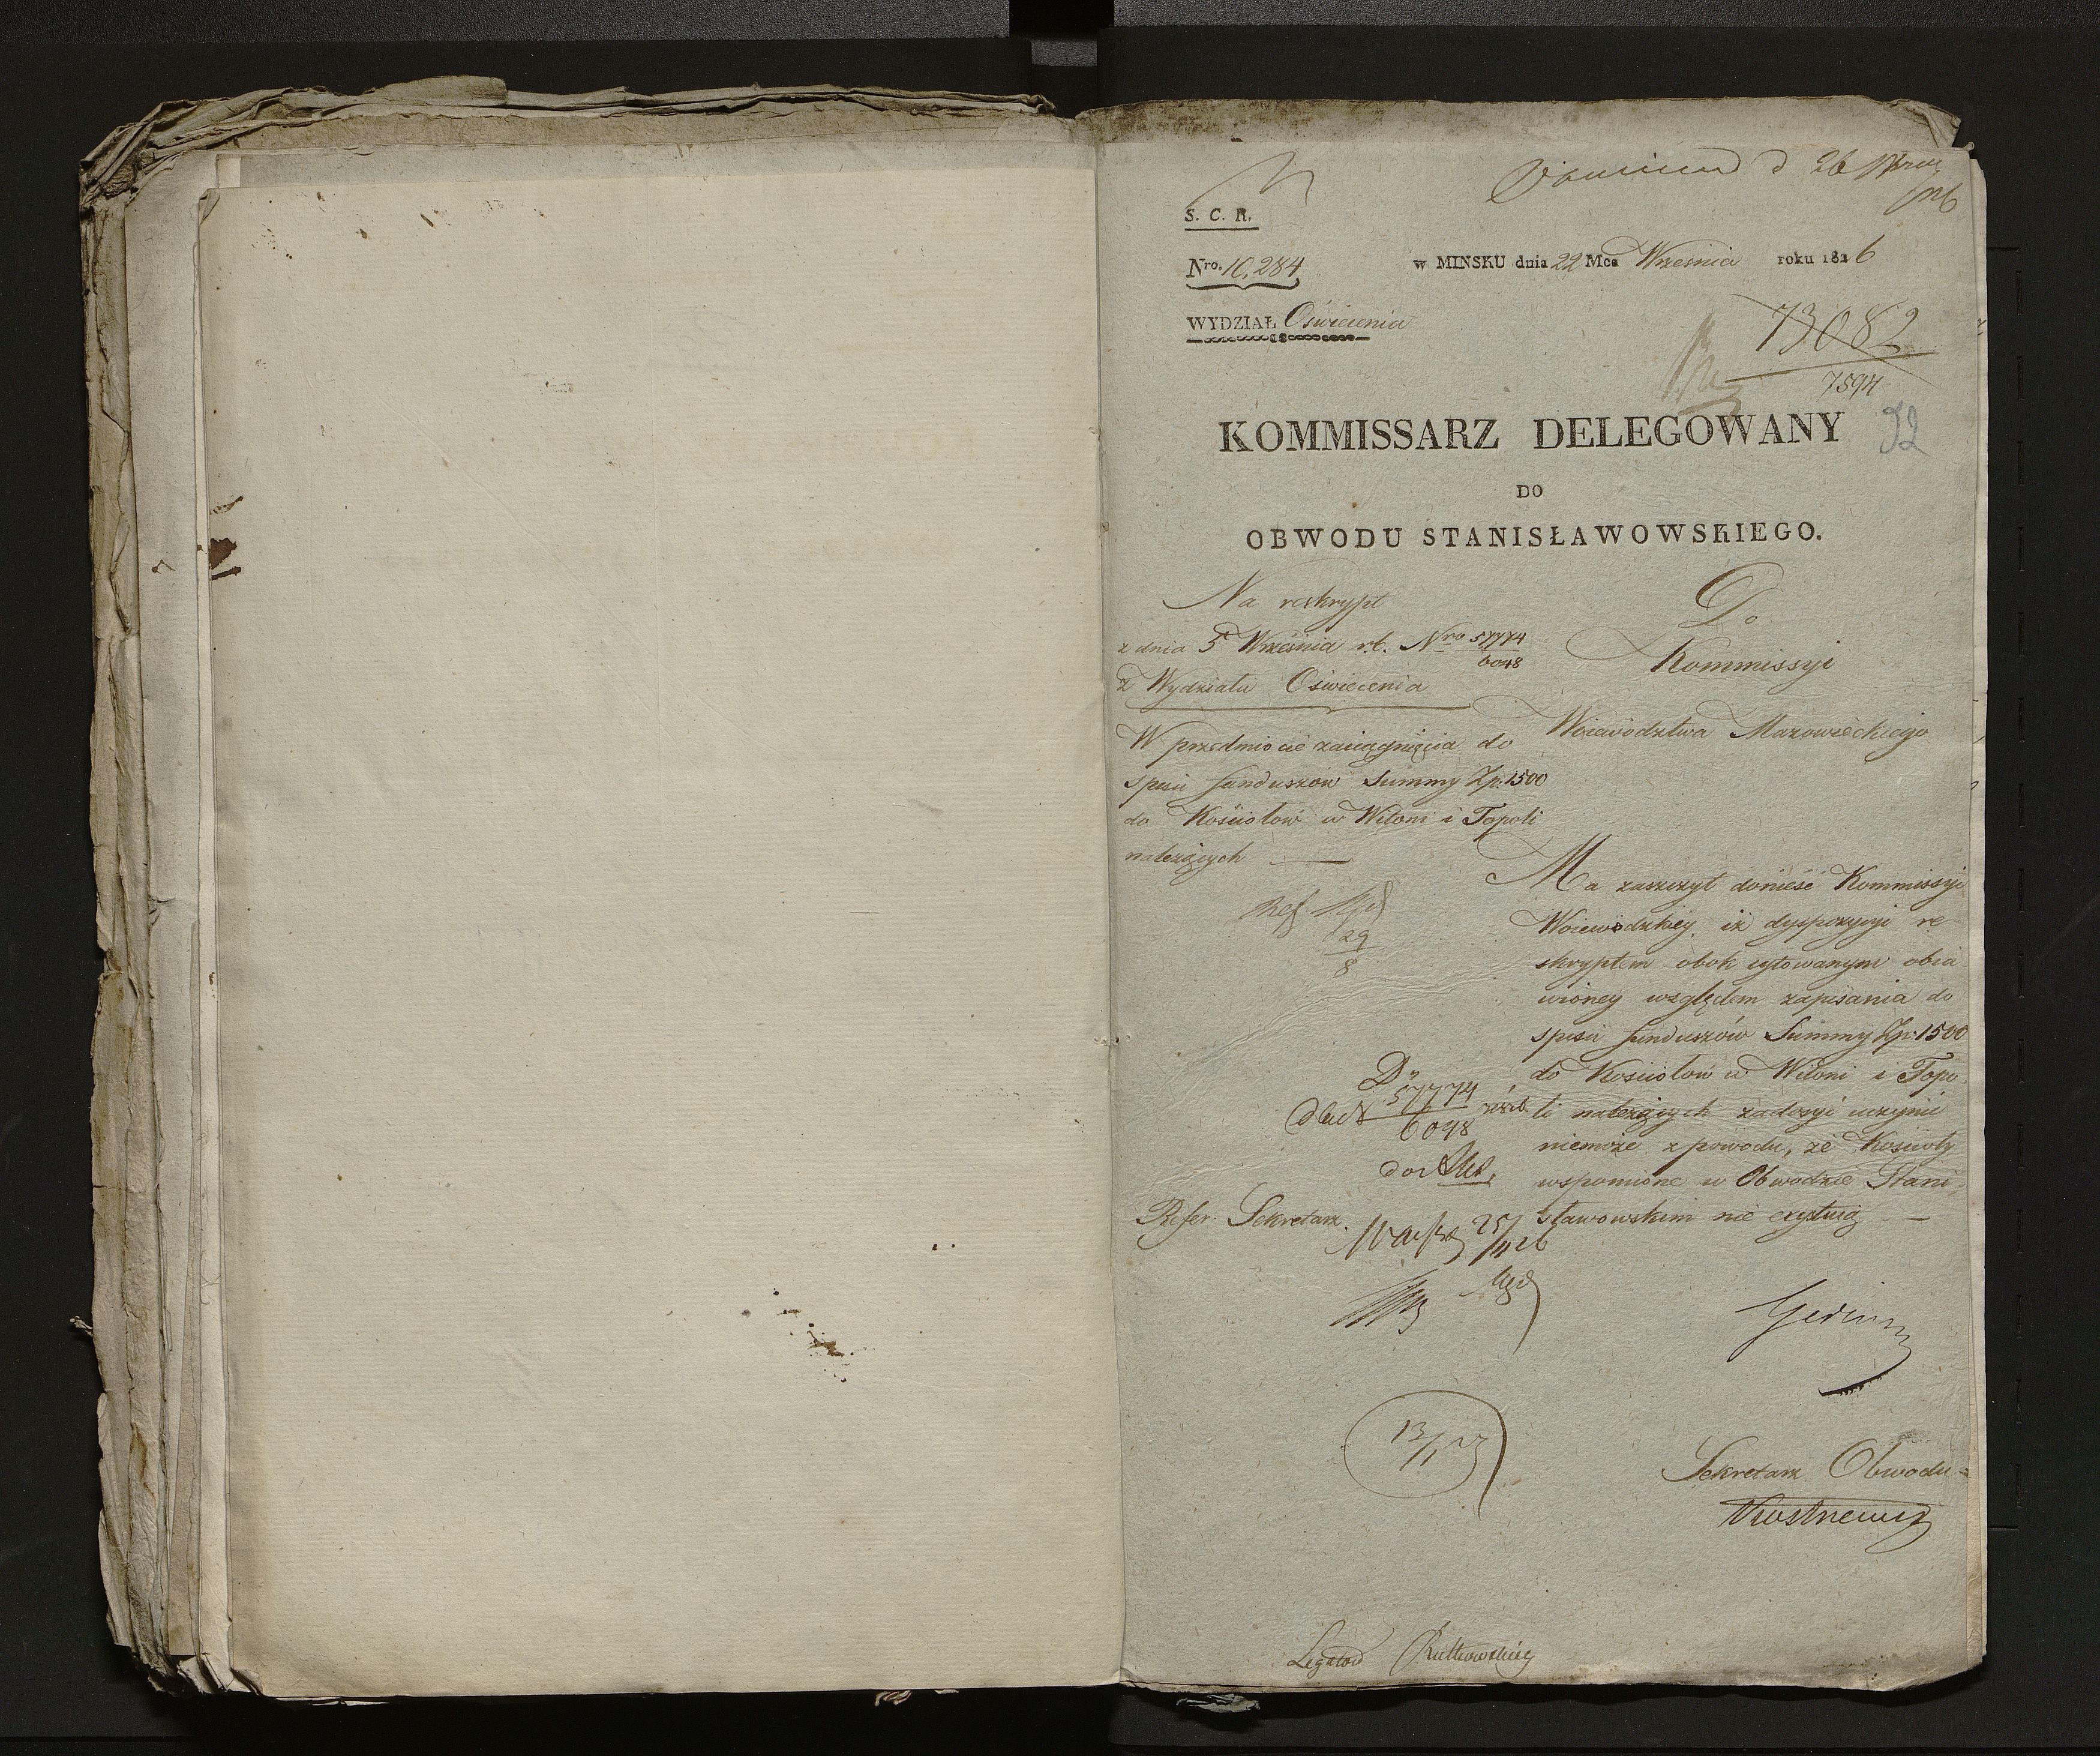 d 26
S. C. R.
Nro. 10,284 w MINSKU dnia 22 Mca Wrzesnia roku 1826
WYDZIAŁ Oświecenia
73082
7594
KOMMISSARZ DELEGOWANY
92
DO
OBWODU STANISŁAWOWSKIEGO.
Na reskrypt
z dnia 5 Września r.b. Nro 57774
6048
z Wydziału Oświecenia
W przedmiocie zaciągnięcia do
spisu funduszów Summy Zp: 1500
do Kościołów w Witoni i Topoli
należących —
Do
Kommissyi
Woiewództwa Mazowieckiego
Ma zaszczyt donieść Kommissyi
Woiewódzkiey, iż dyspozycyi re
skryptem obok cytowanym obia
wioney względem zapisania do
spisu funduszów Summy Zp: 1500
do Kościołów w Witoni i Topo,
li należących zadosyć uczynić
niemoże z powodu, że Kościoły
wspomione w Obwodzie Stani,
sławowskim nie exystuią —
Ref
29
8
57774
6048
Refer. Sekretarz.
25/
13/
Sekretarz Obwodu
Legatów Rutkowskiey